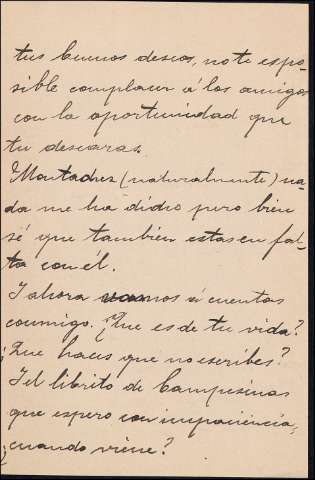 tus buenos deseos, no te es po-
sible complacer á los amigos
con la oportunidad que
tu desearas.
Montadez (naturalmente) na-
da me ha didho pero bien
sé que tambien estas en fal-
ta con él.
I ahora vamos á cuentas
conmigo. ¿Que es de tu vida?
¿Que haces que no escribes?
I el librito de Campesinas
que espero con impaciencia,
¿cuando viene?